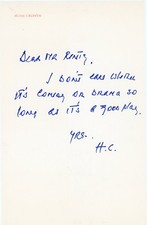 Dear Mr Rentz,
I don't care whether
it's comedy or drama so
long as it's a good play.
Yrs.
H.C.